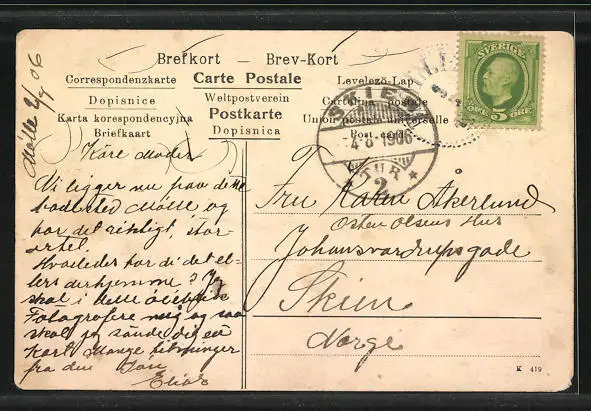 Brefkort — Brev-Kort
Correspondenzkarte Carte Postale Levelező-Lap
Dopisnice Weltpostverein Cartolina postale
Karta korespondencyjna Postkarte Union postale universelle
Briefkaart Dopisnica Post card
SVERIGE
ÖRE 5 ÖRE
SKIEN
-4-8 1906
TUR
2
Mölle 2/ 06
Käre Moder
Vi ligger nu paa dette
badested Mölle og
har det rigtigt, stor
artet.
Hvorledes har di det el-
lers derhjemme? Jeg
skal i
Fotografere mig og saa
skal jeg sände dig en
Kort Mange hilsninger
fra din
Elias
Fru Karen Åkerlund
Osten Olsens Hus
Johansvardrupsgade
Skien
Norge
K 419